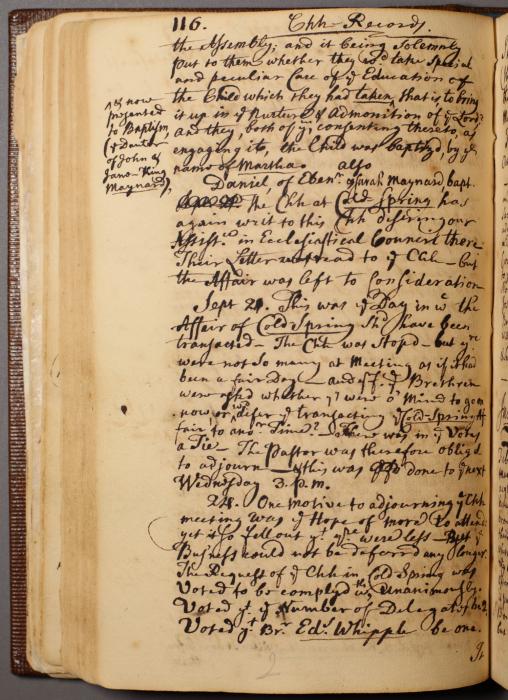 116. Chh Records.
the Assembly; and it being Solemnly
put to them whether they wd take Special
and peculiar Care of ye Education of
the Child which they had taken, that is to bring
it up in ye Nurture & Admonition of ye Lord?
and they, both of ym consenting thereto, as
engaging it, the Child was baptizd, by ye
name of Martha. also
& now
presented
to Baptism
(ye Daugtr
of John &
Jane King
Maynard)
Daniel of Ebenr & Sarah Maynard, bapt.
The Chh at Cold-Spring has
again writ to this Chh desiring our
Assistce in Ecclesiastical Council there
Their Letter was read to ye Chh — but
the Affair was left to Consideration
Sept 21. This was ye Day in wc the
Affair of Cold-Spring shd have been
transacted — The Chh was Stopd — but yre
were not so many at Meeting, as if it had
been a fair Day — and ye Brethren
were askd whether yy were of Mind to go on
now or defer ye transacting ye Cold-Spring Af
fair to anor Time? There was in ye Votes
a Tie — The Pastor was therefore obligd
to adjourn — & this was done to ye next
Wednesday 3. p.m.
28. One motive to adjourning ye Chh
meeting was ye Hope of more to attend:
yet it so fell out yt were less — But ye
Business could not be deferrd any longer.
The Request of ye Chh in Cold-Spring was
Voted to be complyd with, Unanimously.
Voted yt ye Number of Delegates be 2.
Voted yt Br. Edd Whipple be one.
It
2